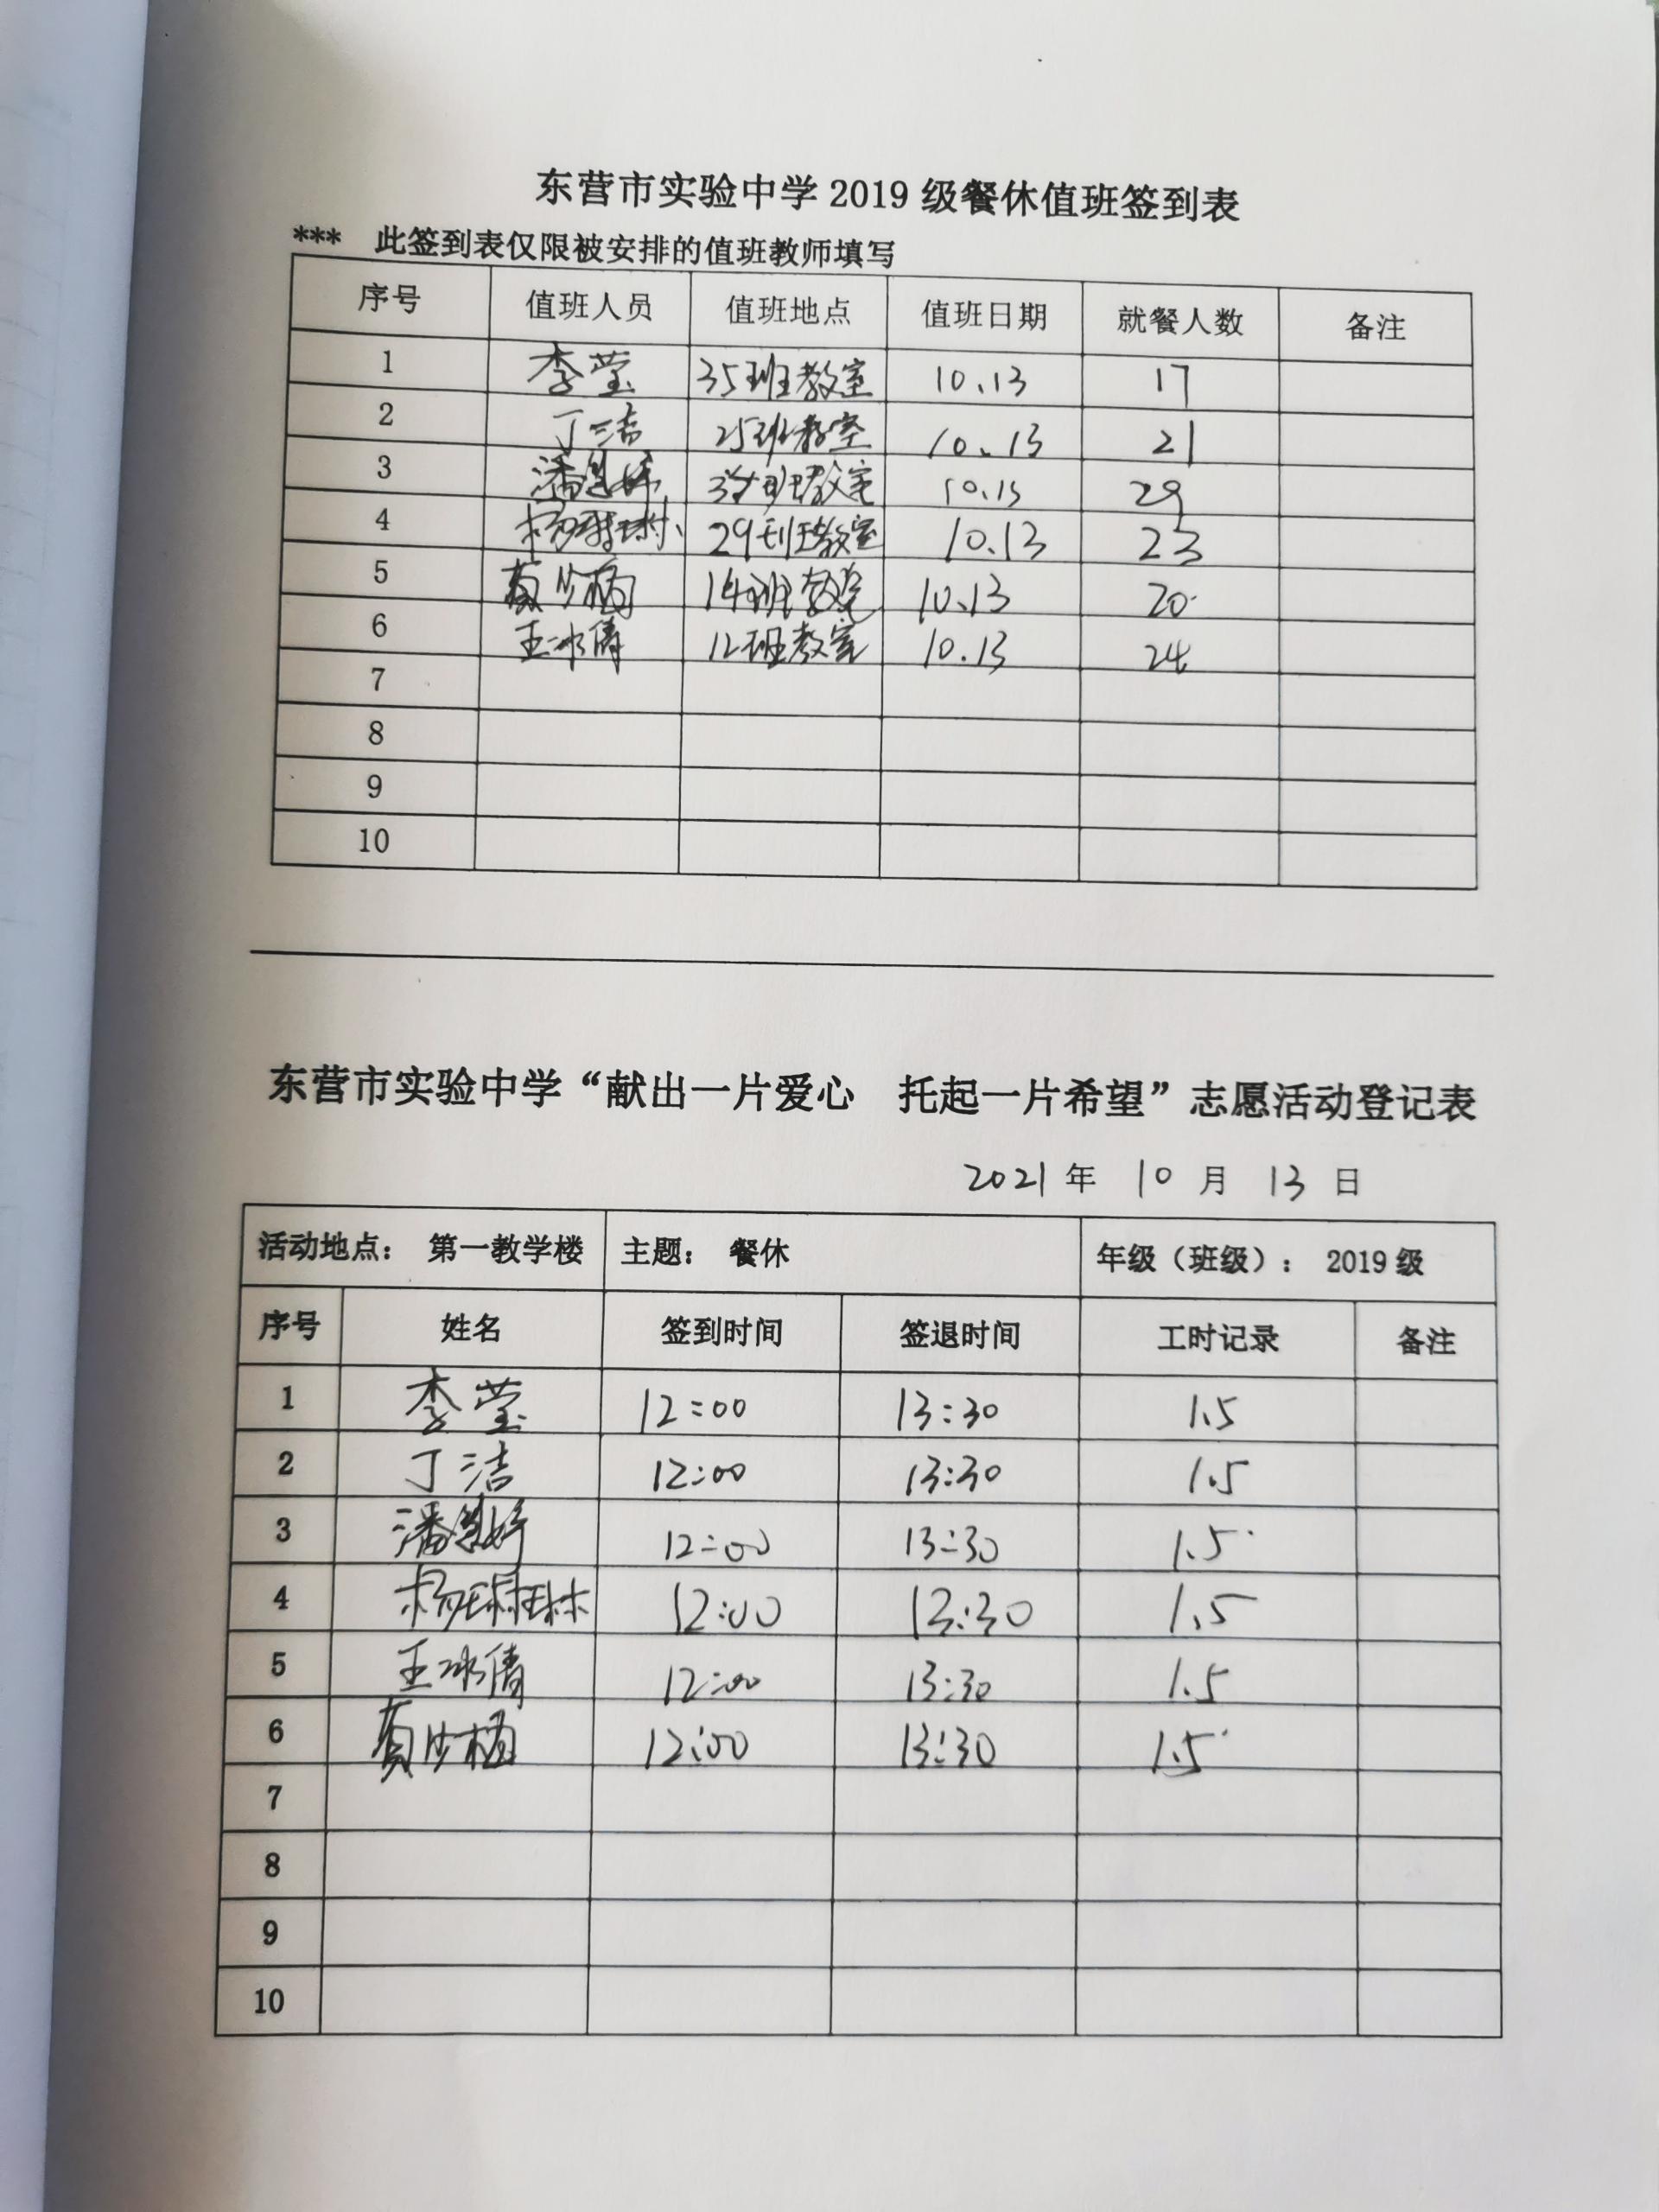 东营市实验中学2019级餐休值班签到表
*** 此签到表仅限被安排的值班教师填写
序号 值班人员 值班地点 值班日期 就餐人数 备注
1 李莹 35班教室 10.13 17
2 丁洁 25班教室 10.13 21
3 潘 班教室 10.13 29
4 杨 29班教室 10.13 23
5 14班教室 10.13 20
6 王冰倩 12班教室 10.13 24
7
8
9
10
东营市实验中学“献出一片爱心 托起一片希望”志愿活动登记表
2021年 10月 13日
活动地点： 第一教学楼 主题： 餐休 年级（班级）： 2019级
序号 姓名 签到时间 签退时间 工时记录 备注
1 李莹 12:00 13:30 1.5
2 丁洁 12:00 13:30 1.5
3 潘 婷 12:00 13:30 1.5
4 杨 琳 12:00 13:30 1.5
5 王冰倩 12:00 13:30 1.5
6 12:00 13:30 1.5
7
8
9
10